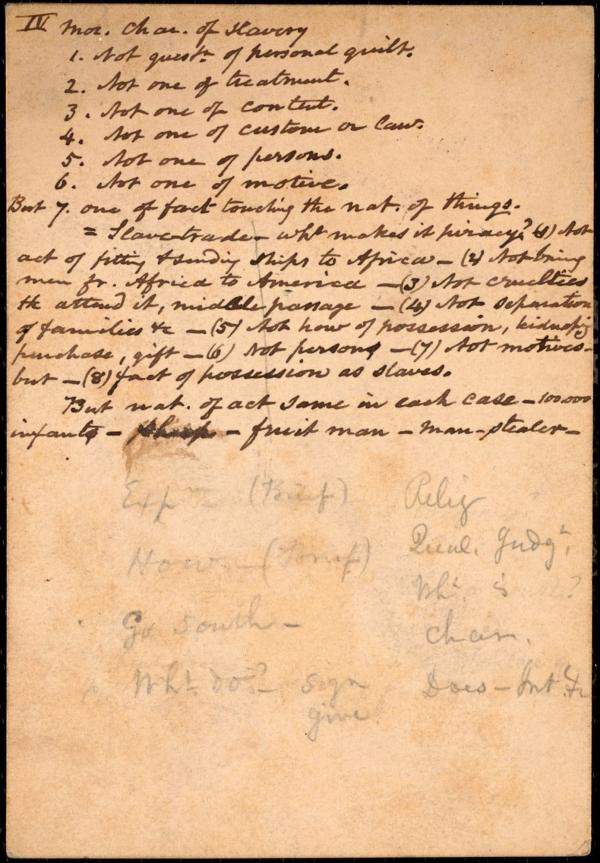 IV Mor. Char. of Slavery
1. Not quest. of personal guilt.
2. Not one of treatment.
3. Not one of content.
4. Not one of custom or law.
5. Not one of persons.
6. Not one of motive.
But 7. one of fact touching the nat. of things.
= Slave-trade - wht makes it piracy? (1) Not
act of fitting & sending ships to Africa - (2) Not bring
men fr. Africa to America - (3) Not cruelties
tt attend it, middle passage - (4) Not separation
of families &c - (5) Not how of possession, kidnapg
purchase, gift - (6) Not persons - (7) Not motives -
but - (8) fact of possession as slaves.
But nat. of act same in each case - 100.000
infants - sheep - fruit man - man-stealer -
(Brief) Relig
How - Qual. Judgt.
Wht. is ?
Go South - Char.
Wht. do? - Sign Does -
give